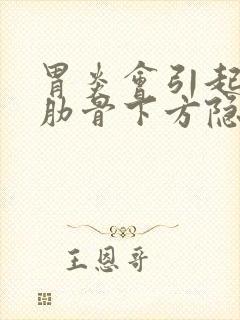 胃炎會引起
肋骨下方隐
王恩哥